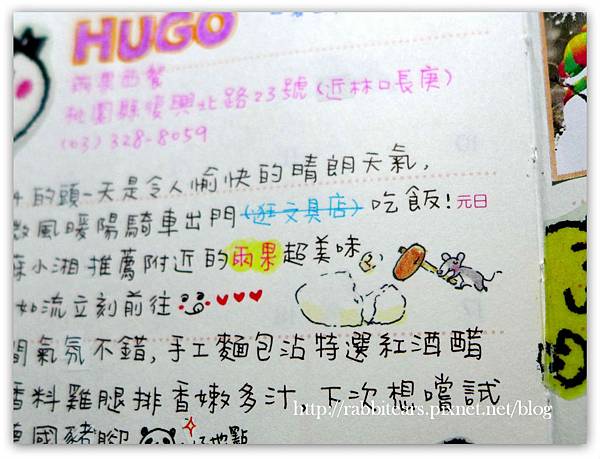 HUGO
雨果西餐
桃園縣復興北路23號(近林口長庚)
(03)328-8059
的頭一天是令人愉快的晴朗天氣,
微風暖陽騎車出門(逛文具店)吃飯!元日
小湘推薦附近的雨果超美味
如流立刻前往
間氣氛不錯,手工麵包沾特選紅酒醋
香料雞腿排香嫩多汁,下次想嚐試
德國豬腳 地點
http://rabbitears.pixnet.net/blog